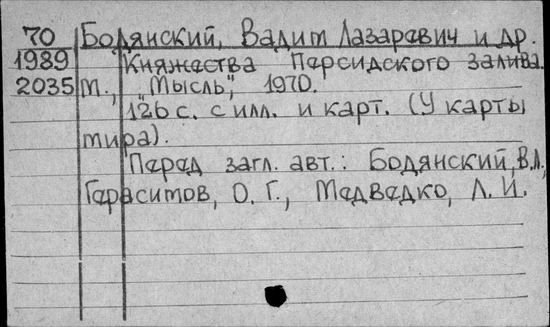 70 Бодянский, Вадим Лазаревич и др.
1989 Княжества Персидского залива.
2035 М., „Мысль", 1970.
126 с. с илл. и карт. (У карты
мира).
Перед загл. авт.: Бодянский, В.Л.,
Герасимов, О. Г., Медведко, Л. И.